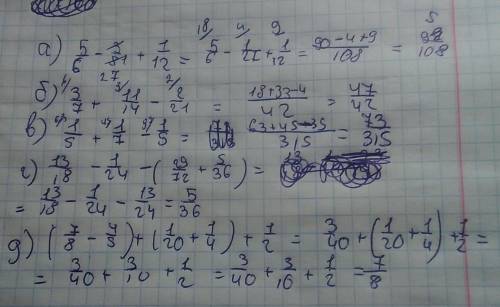 а) 5/6 - 3/81 + 1/12 = 5/6 - 1/27 + 1/12 = 90-4+9/108 = 108
б) 3/7 + 11/14 - 2/21 = 18+33-4/42 = 47/42
в) 1/5 + 1/7 - 1/5 = 63+45-35/315 = 73/315
г) 13/18 - 1/24 - (29/72 + 5/36) =
= 13/18 - 1/24 - 13/24 = 5/36
д) (7/8 - 4/5) + (1/20 + 1/4) + 1/2 = 3/40 + (1/20 + 1/4) + 1/2 =
= 3/40 + 3/10 + 1/2 = 3/40 + 3/10 + 1/2 = 7/8